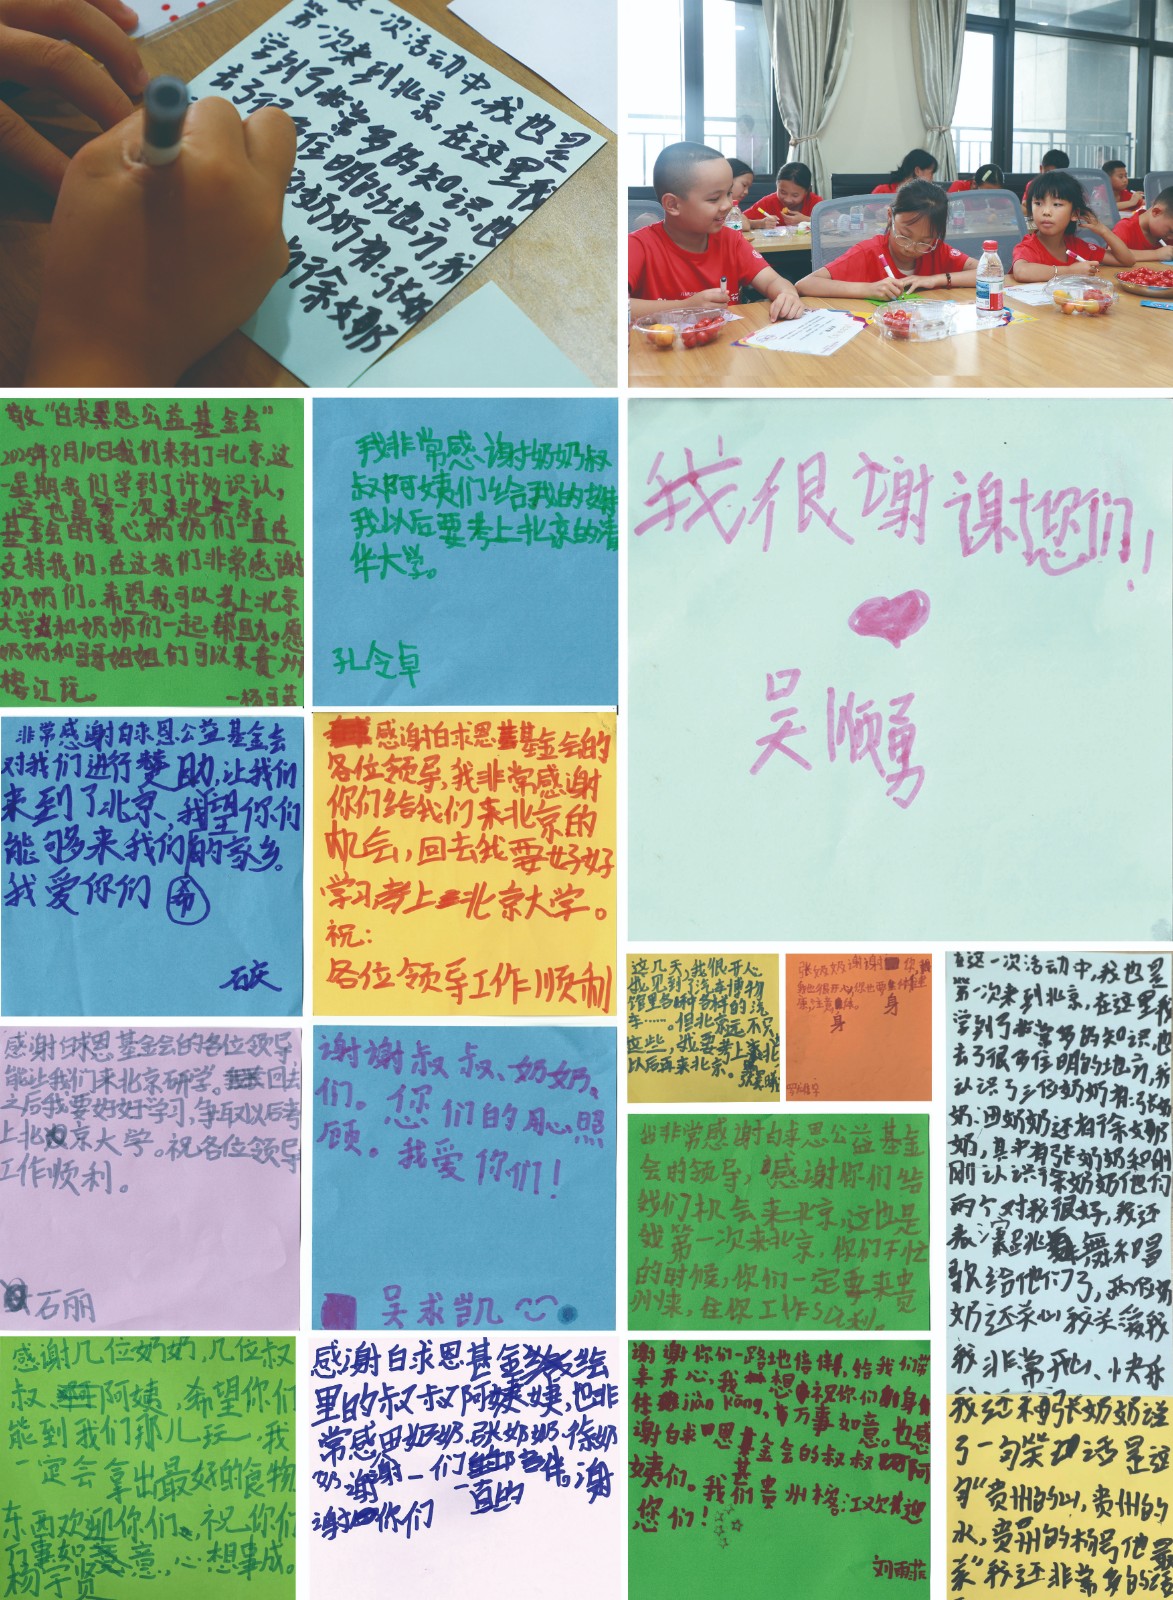 这一次活动中,我也是
第一次来到北京,在这里我
学到了非常多的知识,也
去了很多住明的地方,我
奶奶有:张奶
徐文奶
敬"白求恩公益基金会"
2025年8月10日我们来到了北京,这
一星期我们学到了许知识认,
这也是第一次来北京,
基金会的爱心奶奶们一直在
支持我们,在这我们非常感谢
奶奶们。希望我可以考上北京
大学和奶奶们一起帮助。愿
奶奶和哥哥姐姐们可以来贵州
榕江玩。
我非常感谢奶奶叔
叔阿姨们给我的支持
我以后要考上北京的清
华大学。
孔令卓
我很谢谢您们!
吴顺勇
非常感谢白求恩公益基金会
对我们进行楚助,让我们
来到了北京,我望你们
能够来我们的家乡。
我爱你们 希
石庆
感谢白求恩基金会的
各位领导,我非常感谢
你们给我们来北京的
机会,回去我要好好
学习考上北京大学。
祝:
各位领导工作顺利
感谢白求恩基金会的各位领导,
能让我们来北京研学。回去
之后我要好好学习,争取以后考
上北京大学。祝各位领导
工作顺利。
石丽
谢谢叔叔、奶奶、
们。您们的用心照
顾。我爱你们!
吴求凯
这几天,我很开心
我见到了汽车博物
馆里各种各样的汽
车……。但北京远不只
这些,我要考上北
以后再来北京。
张奶奶谢谢你,
身
身
我非常感谢白求恩公益基金
会的领导,感谢你们给
我们机会来北京,这也是
我第一次来北京,你们不忙
的时候,你们一定要来贵
州来,住你工作顺利。
在这一次活动中,我也是
第一次来到北京,在这里我
学到了非常多的知识,也
去了很多住明的地方,我
认识了三位奶奶有:张奶
奶.田奶奶还有徐文奶
奶,其中有张奶奶和刚
刚认识徐奶奶他们
两个对我很好,我还
表演跳舞和唱
歌给他们了,
奶还关心我关爱我
我非常开心、快乐
我还和张奶奶说
了一句笑话是这
句"贵州的山,贵州的
水,贵州的杨号他最
菜"我还非常多的话
感谢几位奶奶,几位叔
叔阿姨,希望你们
能到我们那儿玩,我
一定会拿出最好的食物
东西欢迎你们、祝你们
万事如意,心想事成。
杨子贤
感谢白求恩基金
里的叔叔阿姨,也非
常感田奶奶.张奶奶.徐奶
奶谢谢一们
谢谢你们 一直的
谢谢你们一路地倍伴,给我们带
来开心,我想祝你们身
体jiàn kāng,万事如意。也感
谢白求恩基金会的叔叔阿
姨们。我们贵州榕江欢迎
您们!
刘雨菲